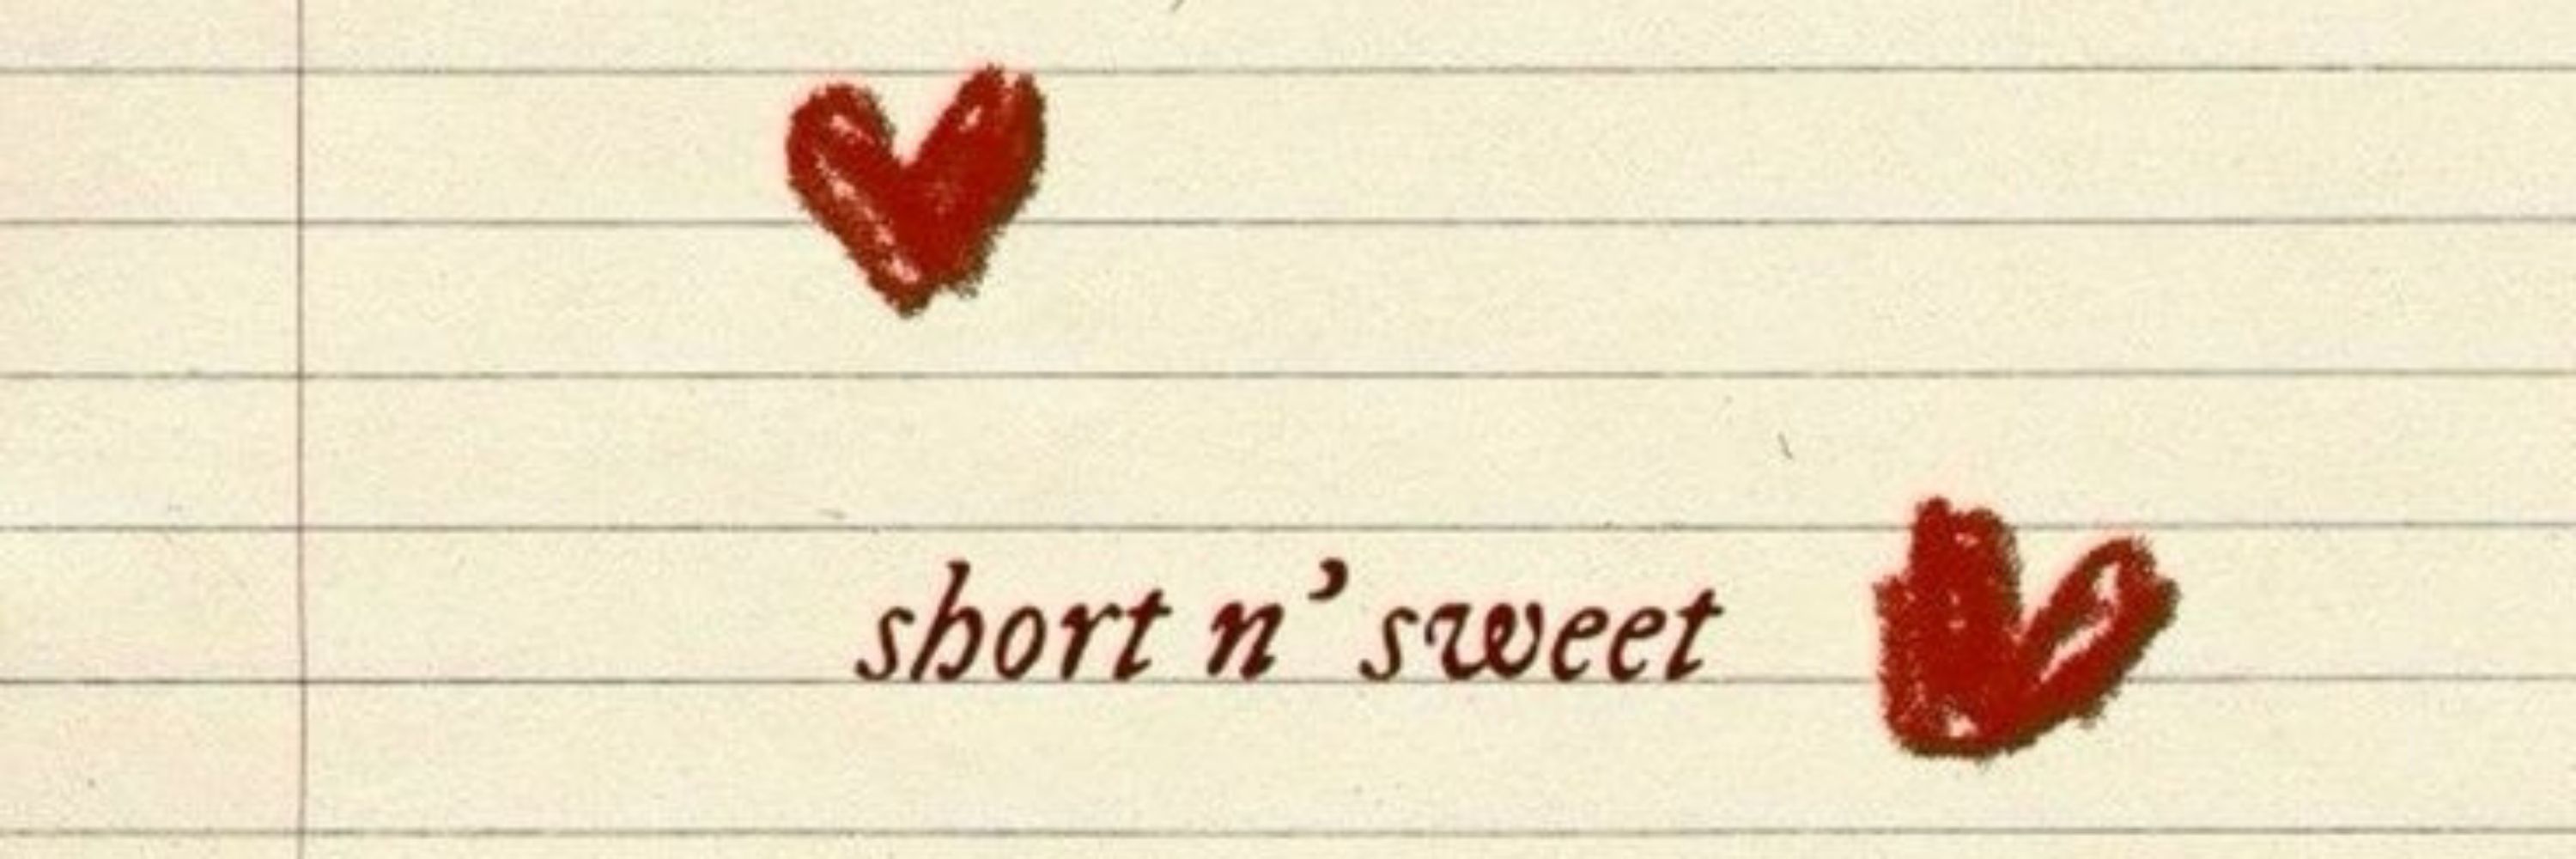 short n’ sweet